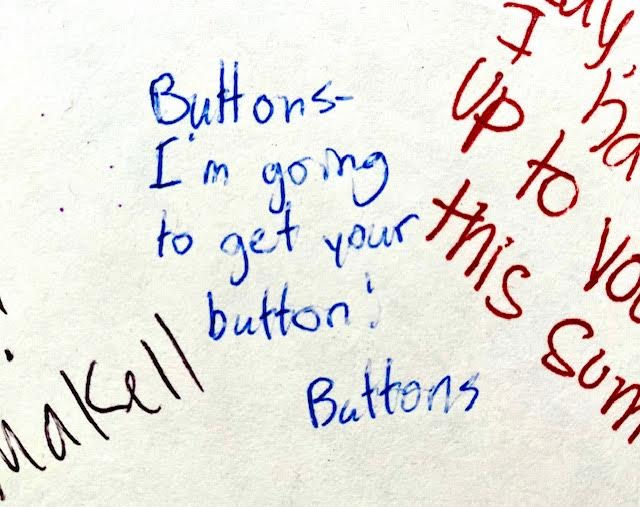 Buttons-
I'm going
to get your
button!
Buttons
I
up to you
this sum
akell